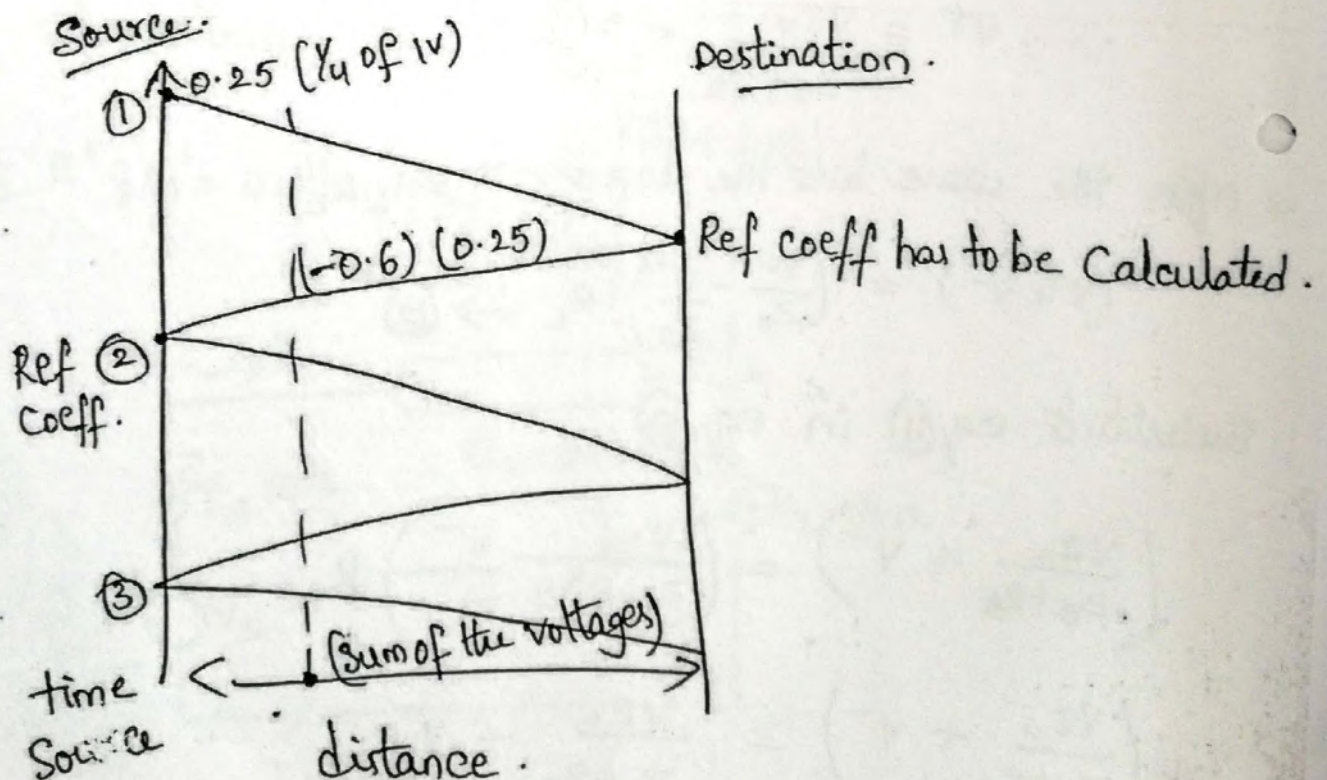 Source.
① 0.25 (1/4 of 1V)
Destination.
(-0.6) (0.25)
Ref coeff has to be Calculated.
Ref ②
coeff.
③
(sum of the voltages)
time
Source
distance.